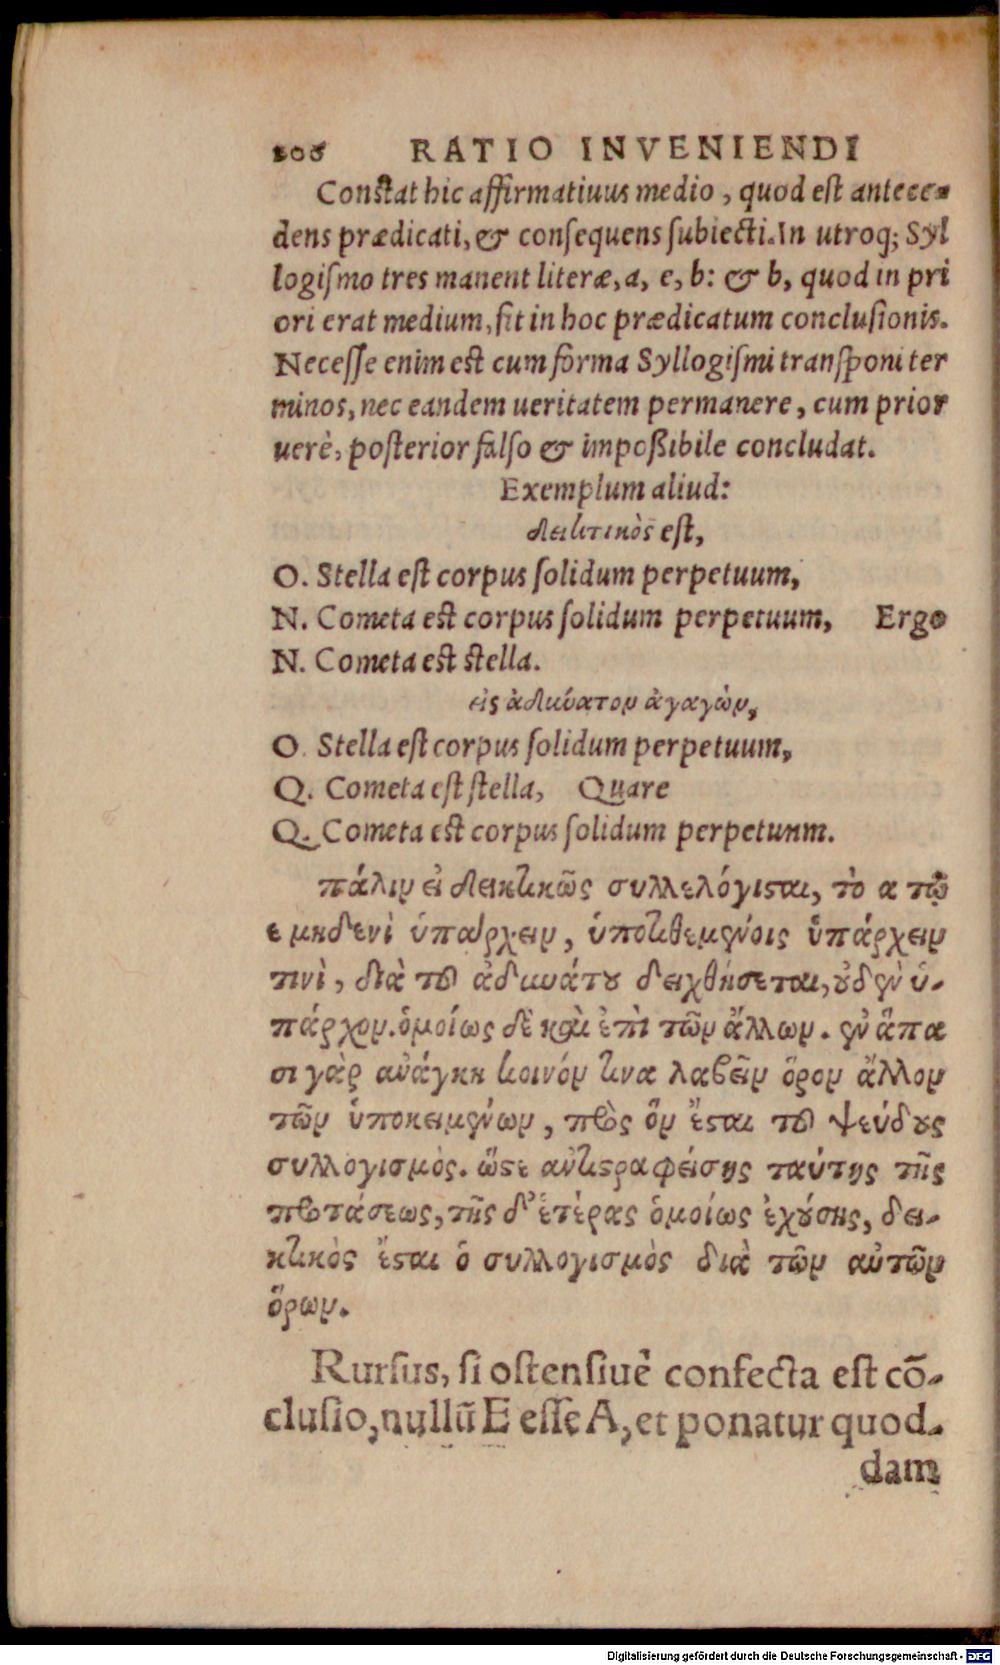 206 RATIO INVENIENDI
Constat hic affirmatiuus medio, quod est antece-
dens prædicati, & consequens subiecti. In utroq; Syl
logismo tres manent literæ, a, e, b: & b, quod in pri
ori erat medium, fit in hoc prædicatum conclusionis.
Necesse enim est cum forma Syllogismi transponi ter
minos, nec eandem ueritatem permanere, cum prior
uerè, posterior falso & impoßibile concludat.
Exemplum aliud:
δεικτικὸς est,
O. Stella est corpus solidum perpetuum,
N. Cometa est corpus solidum perpetuum, Ergo
N. Cometa est stella.
εἰς ἀδύνατον ἀγαγὼν,
O. Stella est corpus solidum perpetuum,
Q. Cometa est stella, Quare
Q. Cometa est corpus solidum perpetunm.
πάλιν εἰ δεικτικῶς συλλελόγισται, τὸ α τῷ
ε μηδενὶ ὑπάρχειν, ὑποτιθεμένοις ὑπάρχειν
τινὶ, διὰ τοῦ ἀδυνάτου δειχθήσεται, οὐδενὶ ὑ-
πάρχον. ὁμοίως δὲ καὶ ἐπὶ τῶν ἄλλων. ἐν ἅπα
σι γὰρ ἀνάγκη κοινόν τινα λαβεῖν ὅρον ἄλλον
τῶν ὑποκειμένων, πρὸς ὃν ἔσται τοῦ ψεύδους
συλλογισμὸς. ὥστε ἀντιστραφείσης ταύτης τῆς
προτάσεως, τῆς δ' ἑτέρας ὁμοίως ἐχούσης, δει-
κτικὸς ἔσται ὁ συλλογισμὸς διὰ τῶν αὐτῶν
ὅρων.
Rursus, si ostensiuè confecta est cō-
clusio, nullū E esse A, et ponatur quod-
dam
Digitalisierung gefördert durch die Deutsche Forschungsgemeinschaft - DFG